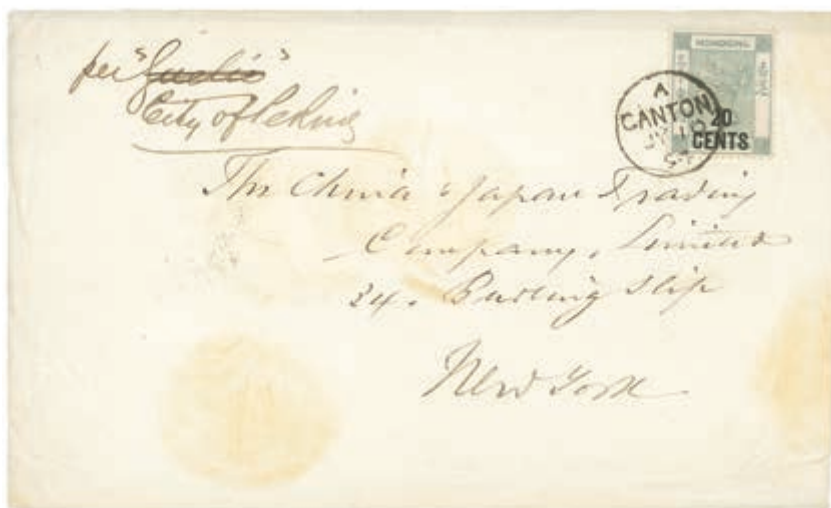 per
City of Peking
HONG KONG
20
CENTS
A
CANTON
JY
The China & Japan Trading
Company, Limited
34. Burling Slip
New York